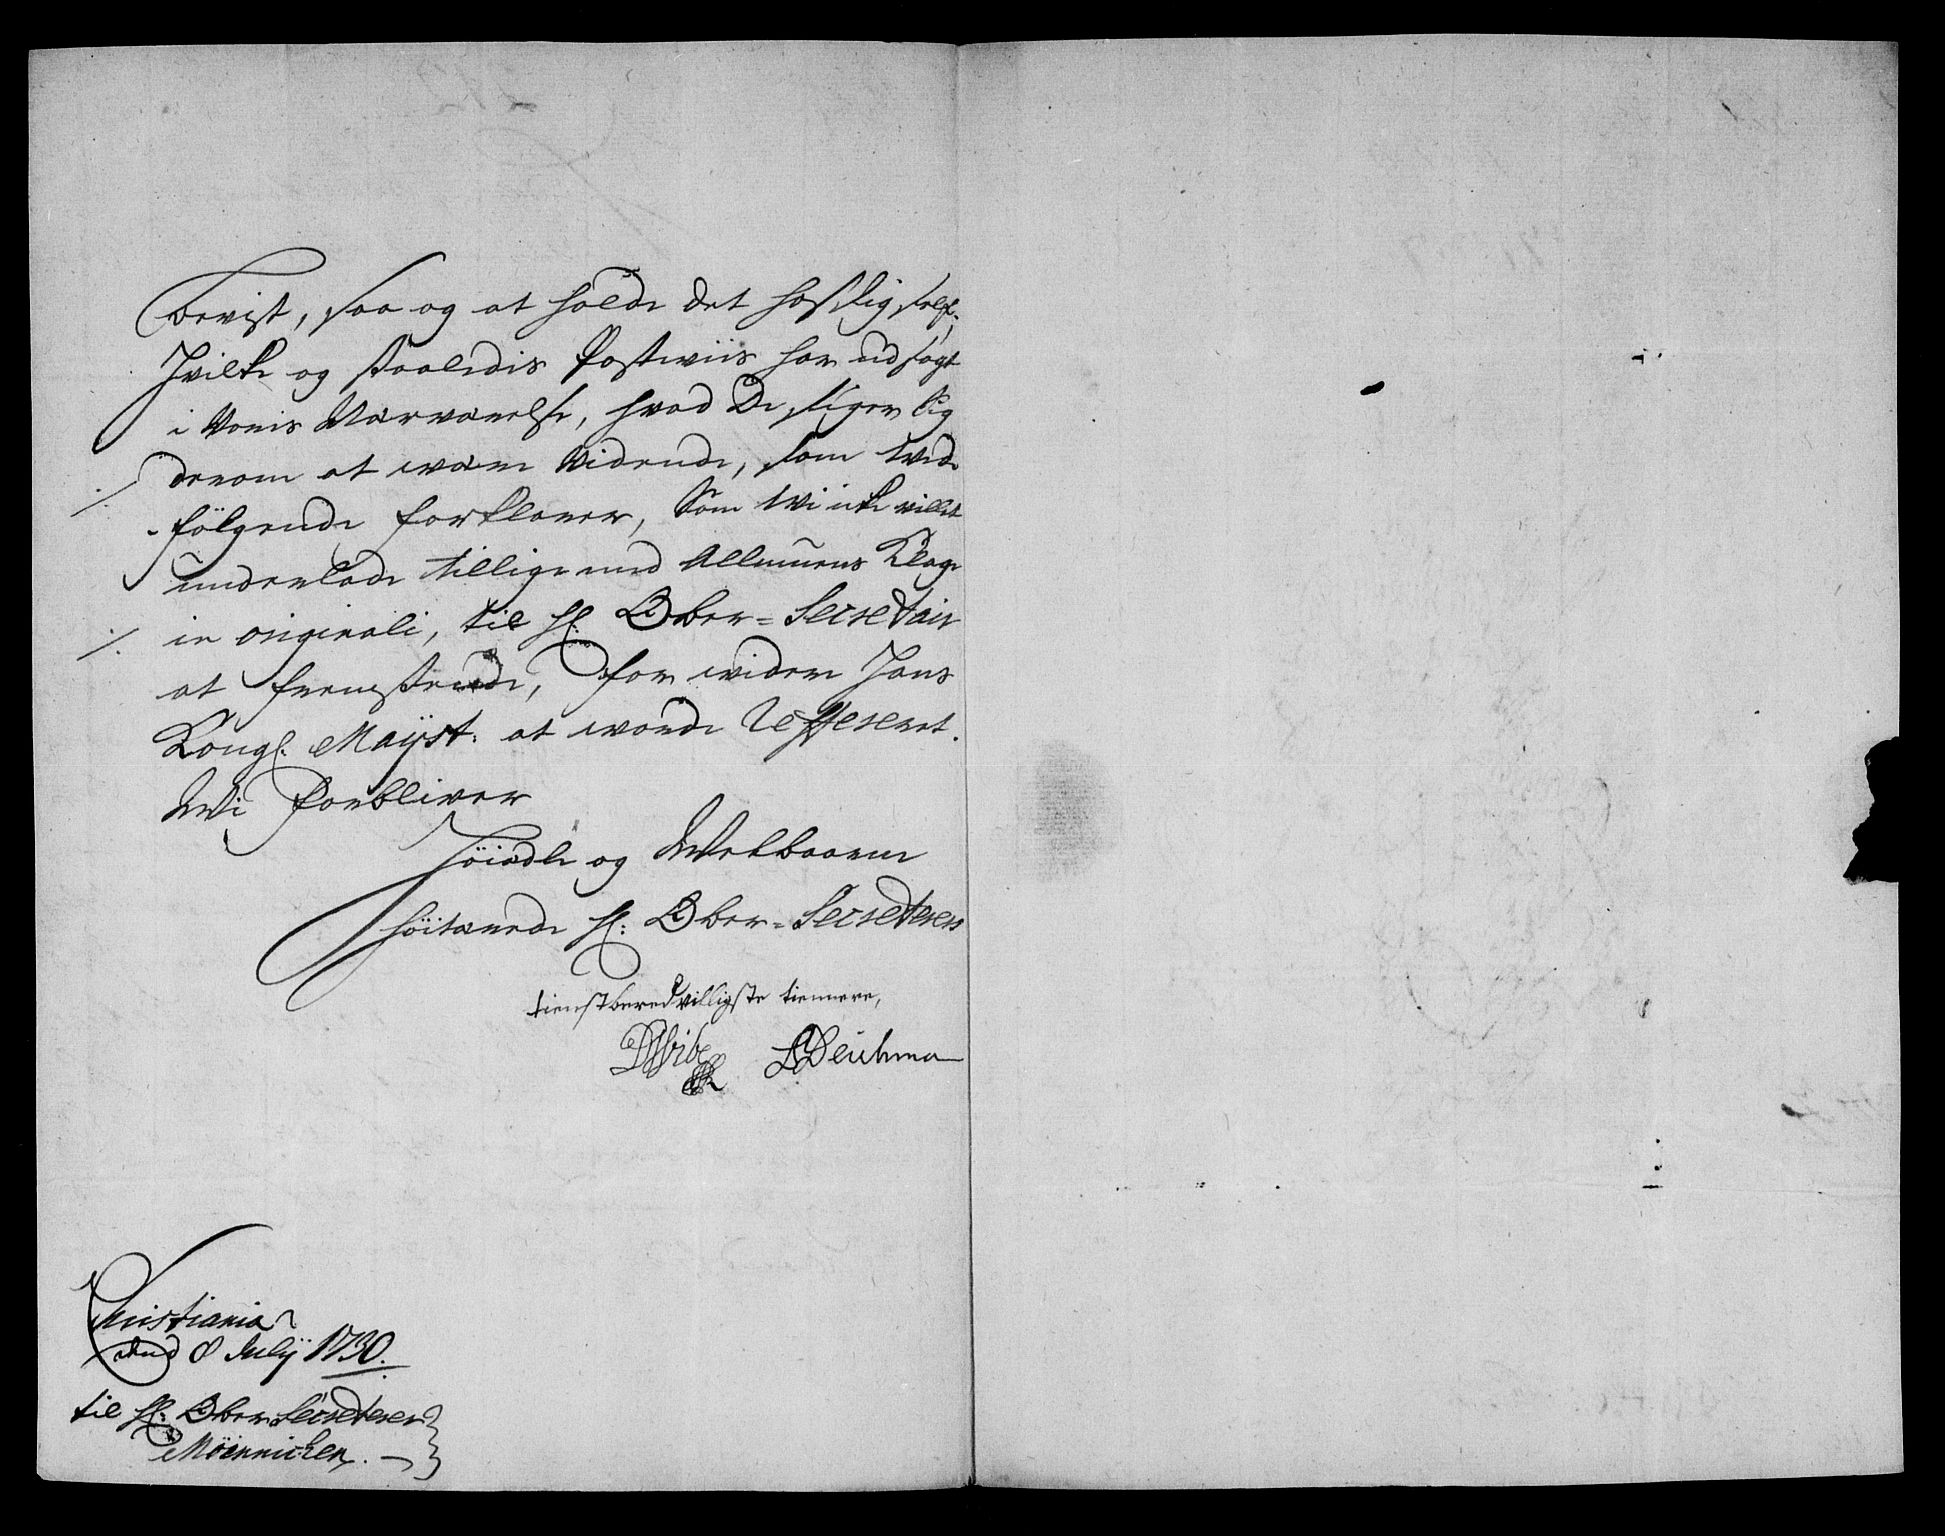 beviist, saa og at holde det hos sig self,
Hvilke og saaledis Postviis har udsagt
i Voris Nærværelse, hvad De siger sig
derom at være Vidende, som Wed-
følgende forklarer, Som Wi icke villet
underlade tillige med Allmuens Klage
in originali, til Hr: Ober-Secretair
at fremsende, for videre Hans
Kongl. Mayst: at worde Refereret.
Wi Forbliver
Höiædle og Welbaarne
Höitærede Hr: Ober-Secreterers
tienstberedvilligste tiennere,
DVibe BDeichman
Christiania
dend 8 July 1730.
til Hr: Ober Secreterer
Möinnichen.